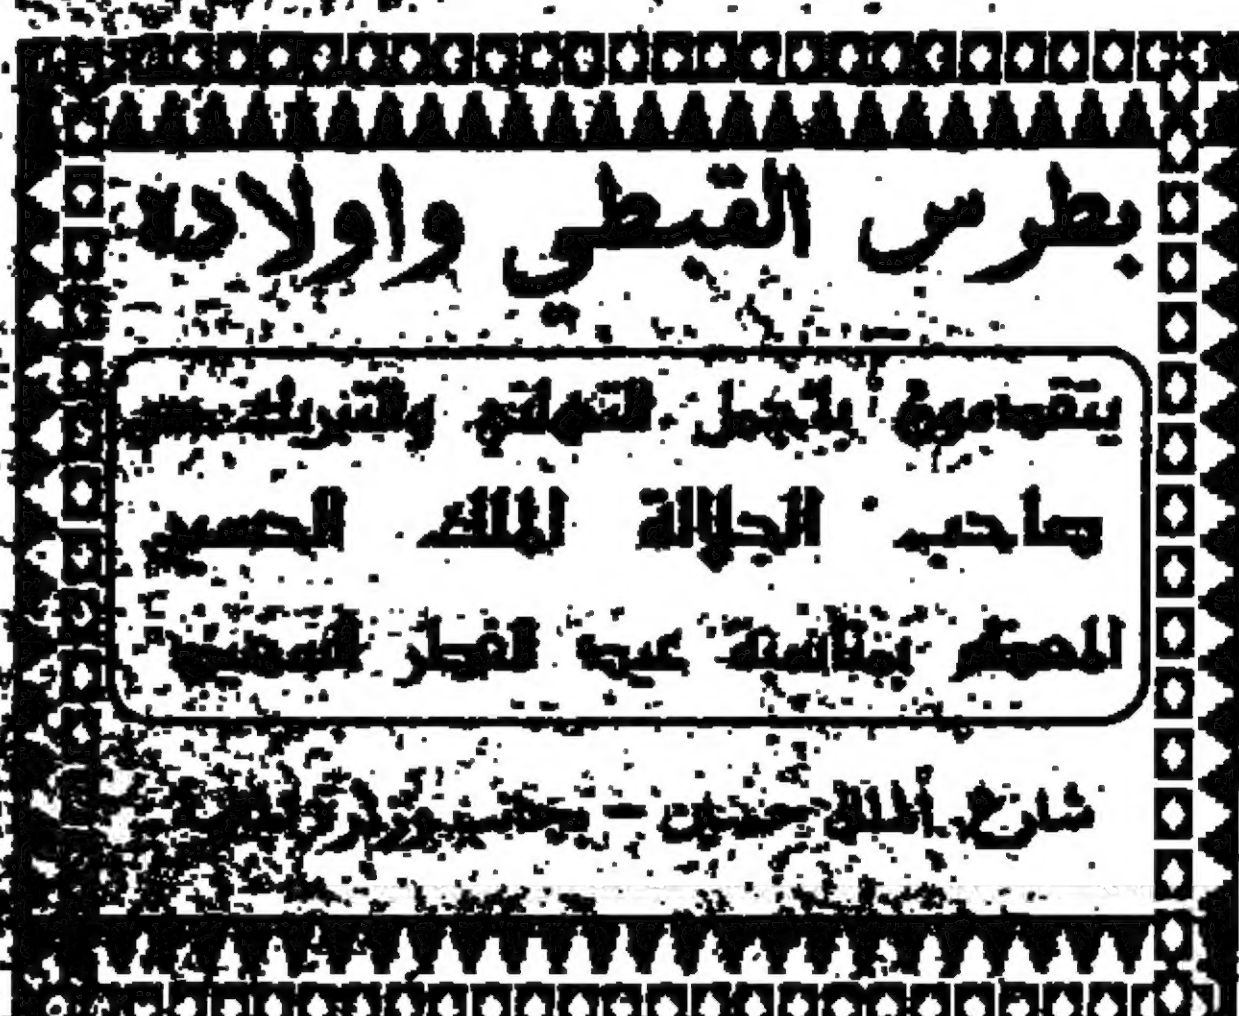 بطرس القبطي واولاده
يتقدمون باجمل التهاني والتبريك من
صاحب الجلالة الملك الحسين
المعظم بمناسبة عيد الفطر السعيد
شارع الملك حسين -